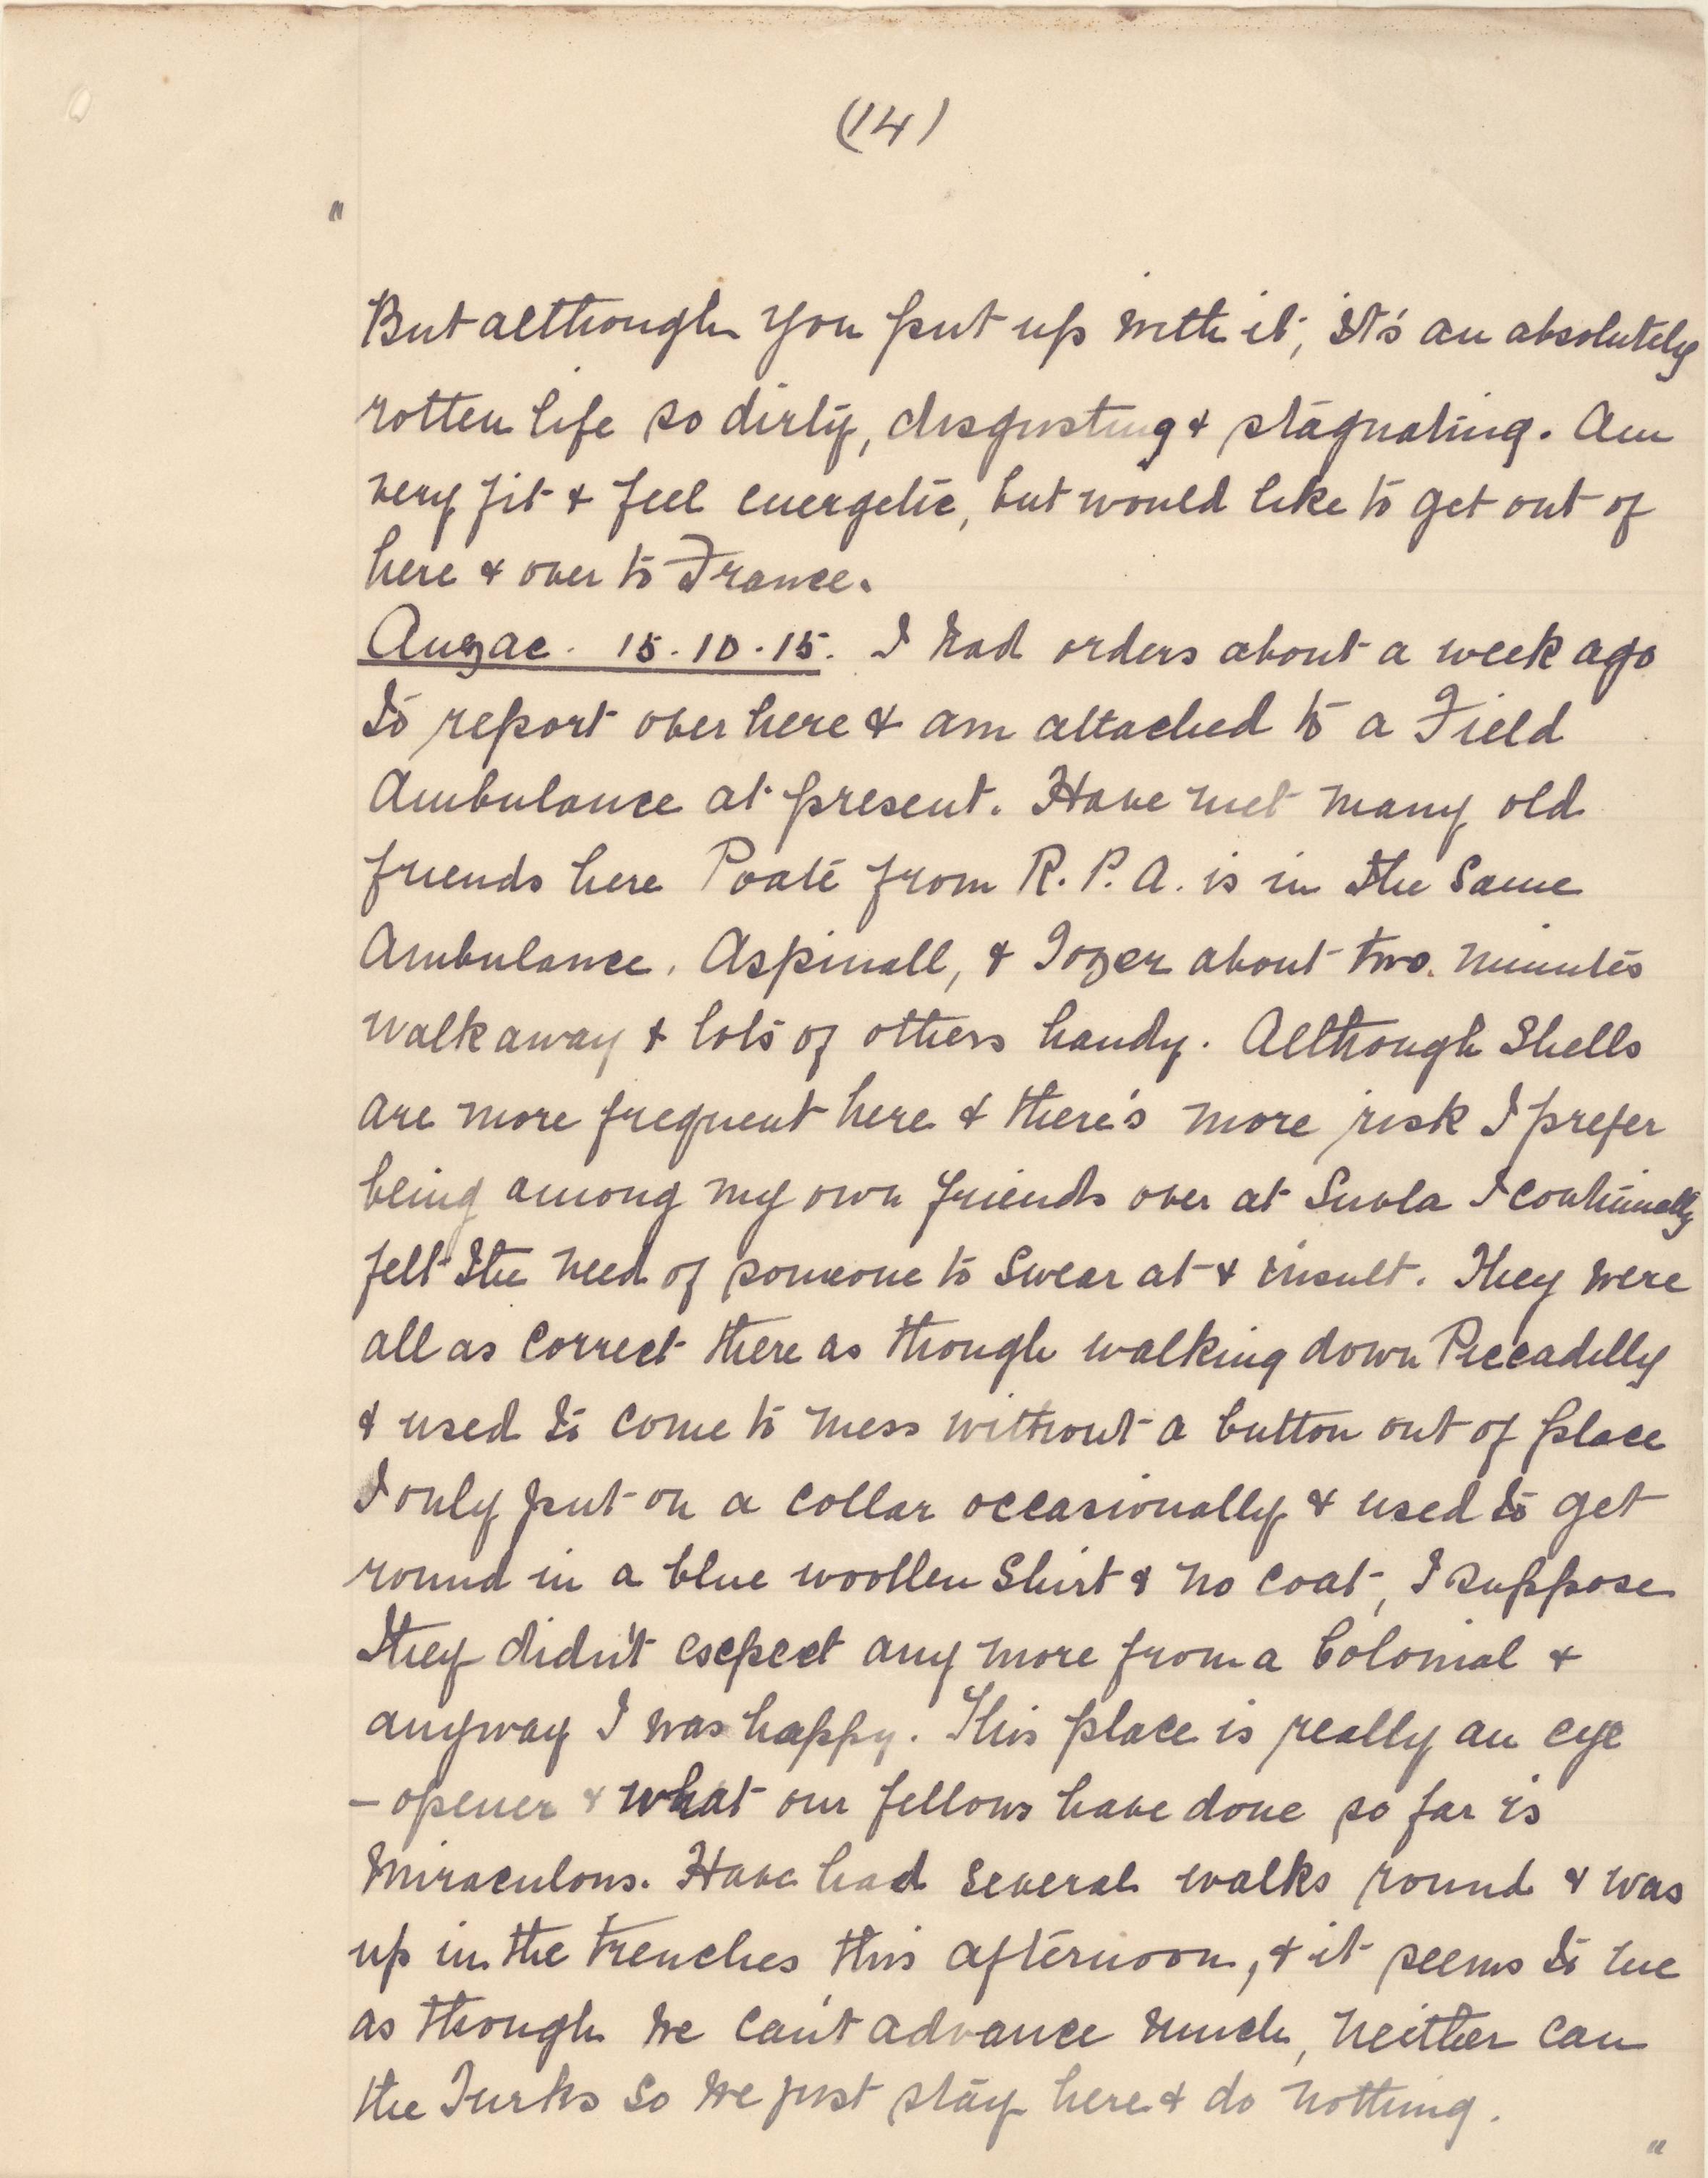 (14)
"
But although you put up with it, it's an absolutely
rotten life so dirty, disgusting & stagnating. Am
very fit & feel energetic, but would like to get out of
here & over to France.
Anzac. 15.10.15. I had orders about a week ago
to report over here & am attached to a Field
Ambulance at present. Have met many old
friends here Poate from R.P.A. is in the same
Ambulance. Aspinall, & Tozer about two minutes
walk away & lots of others handy. Although Shells
are more frequent here & there's more risk I prefer
being among my own friends over at Suvla I continually
felt the need of someone to swear at & insult. They were
all as correct there as though walking down Piccadilly
& used to come to mess without a button out of place
I only put on a collar occasionally & used to get
round in a blue woollen shirt & no coat, I suppose
they didn't expect any more from a Colonial &
anyway I was happy. This place is really an eye
- opener & what our fellows have done so far is
miraculous. Have had several walks round & was
up in the trenches this afternoon, & it seems to me
as though we can't advance much, neither can
the Turks so we just stay here & do nothing.
"